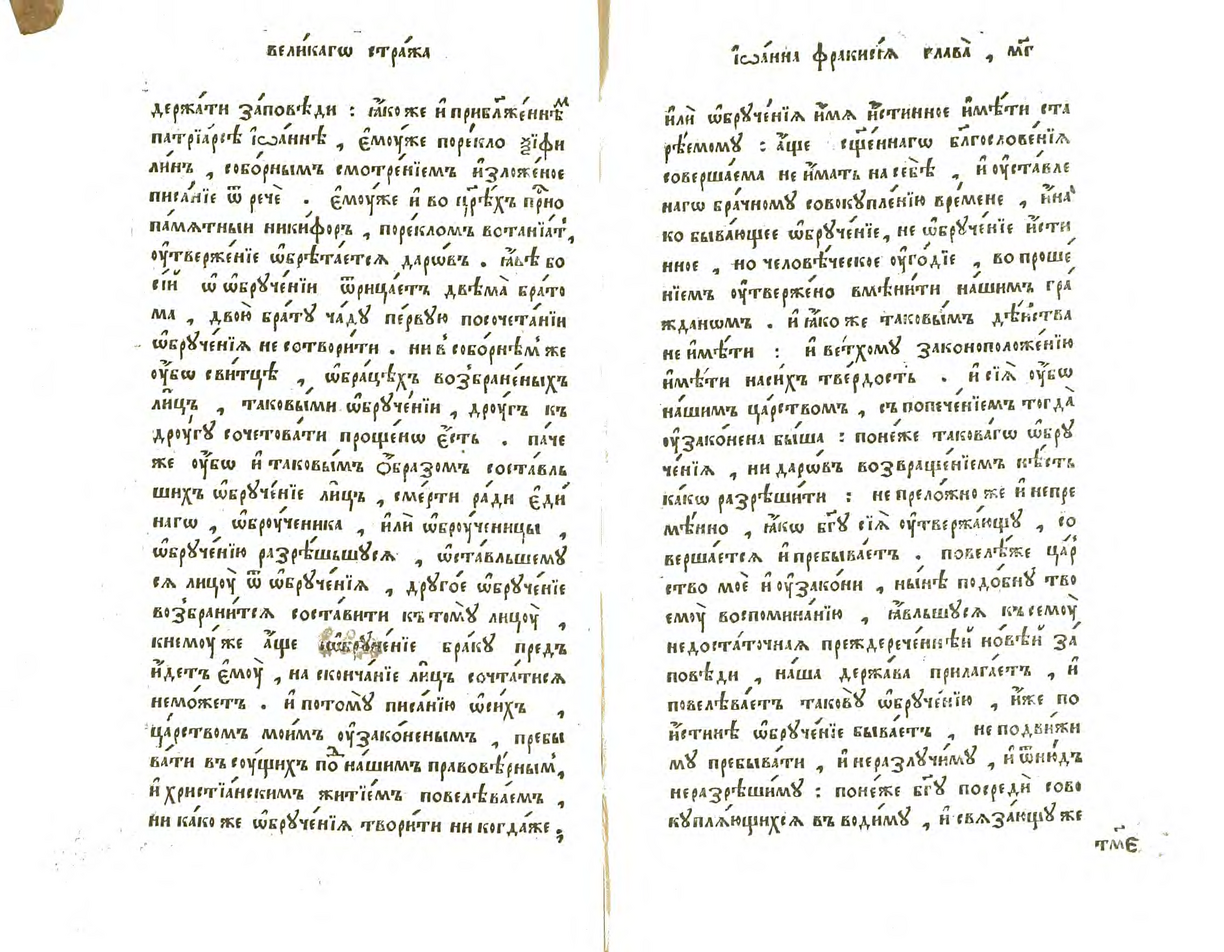 вели́кагѡ стра́жа
держа́ти за́повѣди : ꙗ҆́коже и҆ прибл҃же́ннѣⷨ
патрїа́рсѣ і҆ѡа́ннѣ , є҆моу́же поре́кло ѯїфи
ли́нъ , собо́рнымъ смотре́нїемъ и҆зложе́ное
писа́нїе ѿ речѐ . є҆моу́же и҆ во цр҃ѣ́хъ пр҇но
па́мятныи никифо́ръ , поре́кломъ вотанїа́т ,
оу҆твержє́нїе ѡ҆брѣта́ется даро́въ . ꙗ҆́вѣ бо
сі́й ѡ҆ ѡ҆бруче́нїи ѿрица́етъ двѣма̀ бра́то
ма , двою̀ бра́тꙋ ча́дꙋ пе́рвую посочета́нїи
ѡ҆бруче́нїя не сотвори́ти . ни в̾ собо́рнѣм̾ же
оу҆́бѡ сви́тцѣ , ѡ҆бра́цѣхъ возбране́ныхъ
ли́цъ , таковы́ми ѡ҆бруче́нїи , дроу́гъ къ
дроу́гꙋ сочетова́ти проще́нѡ є҆́сть . па́че
же оу҆́бѡ и҆ таковы́мъ ѻ҆́бразомъ соста́вль
шихъ ѡ҆бруче́нїе ли́цъ , сме́рти ра́ди є҆ди́
нагѡ , ѡ҆броу́ченика , и҆лѝ ѡ҆броу́ченицы ,
ѡ҆бруче́нїю разрѣ́шьшуся , ѡ҆ста́вльшемꙋ
ся лицоу̀ ѿ ѡ҆бруче́нїя , друго́е ѡ҆бруче́нїе
возбрани́тся соста́вити к̾ томꙋ̀ лицоу̀ ,
кнемоу́же а҆́ще ѡ҆бруче́нїе бра́кꙋ предъ
и҆́детъ є҆моу̀ , на сконча́нїе ли́цъ сочта́тися
немо́жетъ . и҆ потомꙋ̀ писа́нїю ѡ҆си́хъ ,
ца́рствомъ мои́мъ оу҆зако́неным̾ , пребы
ва́ти въ соу́щихъ поⷣ на́шимъ правовѣ́рным̾ ,
и҆ христїа́нскимъ житїе́мъ повелѣва́емъ ,
ни ка́ко же ѡ҆бруче́нїя твори́ти ни когда́же ,
і҆ѡа́нна фракисі́я глава̀ , мг҃
и҆лѝ ѡ҆бруче́нїя и҆́мя и҆́стинное и҆мѣ́ти ста
рѣ́емомꙋ : а҆́ще сщ҃е́ннагѡ бл҃гослове́нїя
соверша́ема не и҆́мать на себѣ̀ , и҆ оу҆ста́вле
нагѡ бра́чномꙋ совокупле́нїю вре́мене , и҆́на
ко быва́ющее ѡ҆бруче́нїе , не ѡ҆бруче́нїе и҆́сти
нное , но человѣ́ческое оу҆го́дїе , во проше́
нїемъ оу҆твержено̀ вмѣни́ти на́шимъ гра́
жданѡмъ . и҆ ꙗ҆́ко же таковы́мъ дѣ́йства
не и҆мѣ́ти : и҆ ве́тхомꙋ законоположе́нїю
и҆мѣ́ти наси́хъ тве́рдость . и҆ сїя̀ оу҆́бѡ
на́шимъ ца́рствомъ , съ попече́нїемъ тогда̀
оу҆зако́нена бы́ша : поне́же такова́гѡ ѡ҆брꙋ
че́нїя , ни даро́въ возвраще́нїемъ нѣ́сть
ка́кѡ разрѣши́ти : не прело́жно же и҆ непре
мѣ́нно , ꙗ҆́кѡ бг҃ꙋ сїя̀ оу҆твержа́ющꙋ , со
верша́ется и҆ пребыва́етъ . повелѣ́же ца́р̾
ство моѐ и҆ оу҆зако́ни , ны́нѣ подо́бнꙋ тво
емоу̀ воспомина́нїю , ꙗ҆́вльшуся къ семоу̀
недоста́точная преждерече́ннѣй но́вѣй за́
повѣди , на́ша держа́ва прилага́етъ , и҆
повелѣва́етъ такову̀ ѡ҆бруче́нїю , и҆́же по
и҆́стинѣ ѡ҆бруче́нїе быва́етъ , не подви́жи
мꙋ пребыва́ти , и҆ неразлучи́мꙋ , и҆ ѿню́дъ
неразрѣши́мꙋ : поне́же бг҃ꙋ посредѝ сово
купля́ющихся въводи́мꙋ , и҆ связа́ющꙋ же
тм҃є